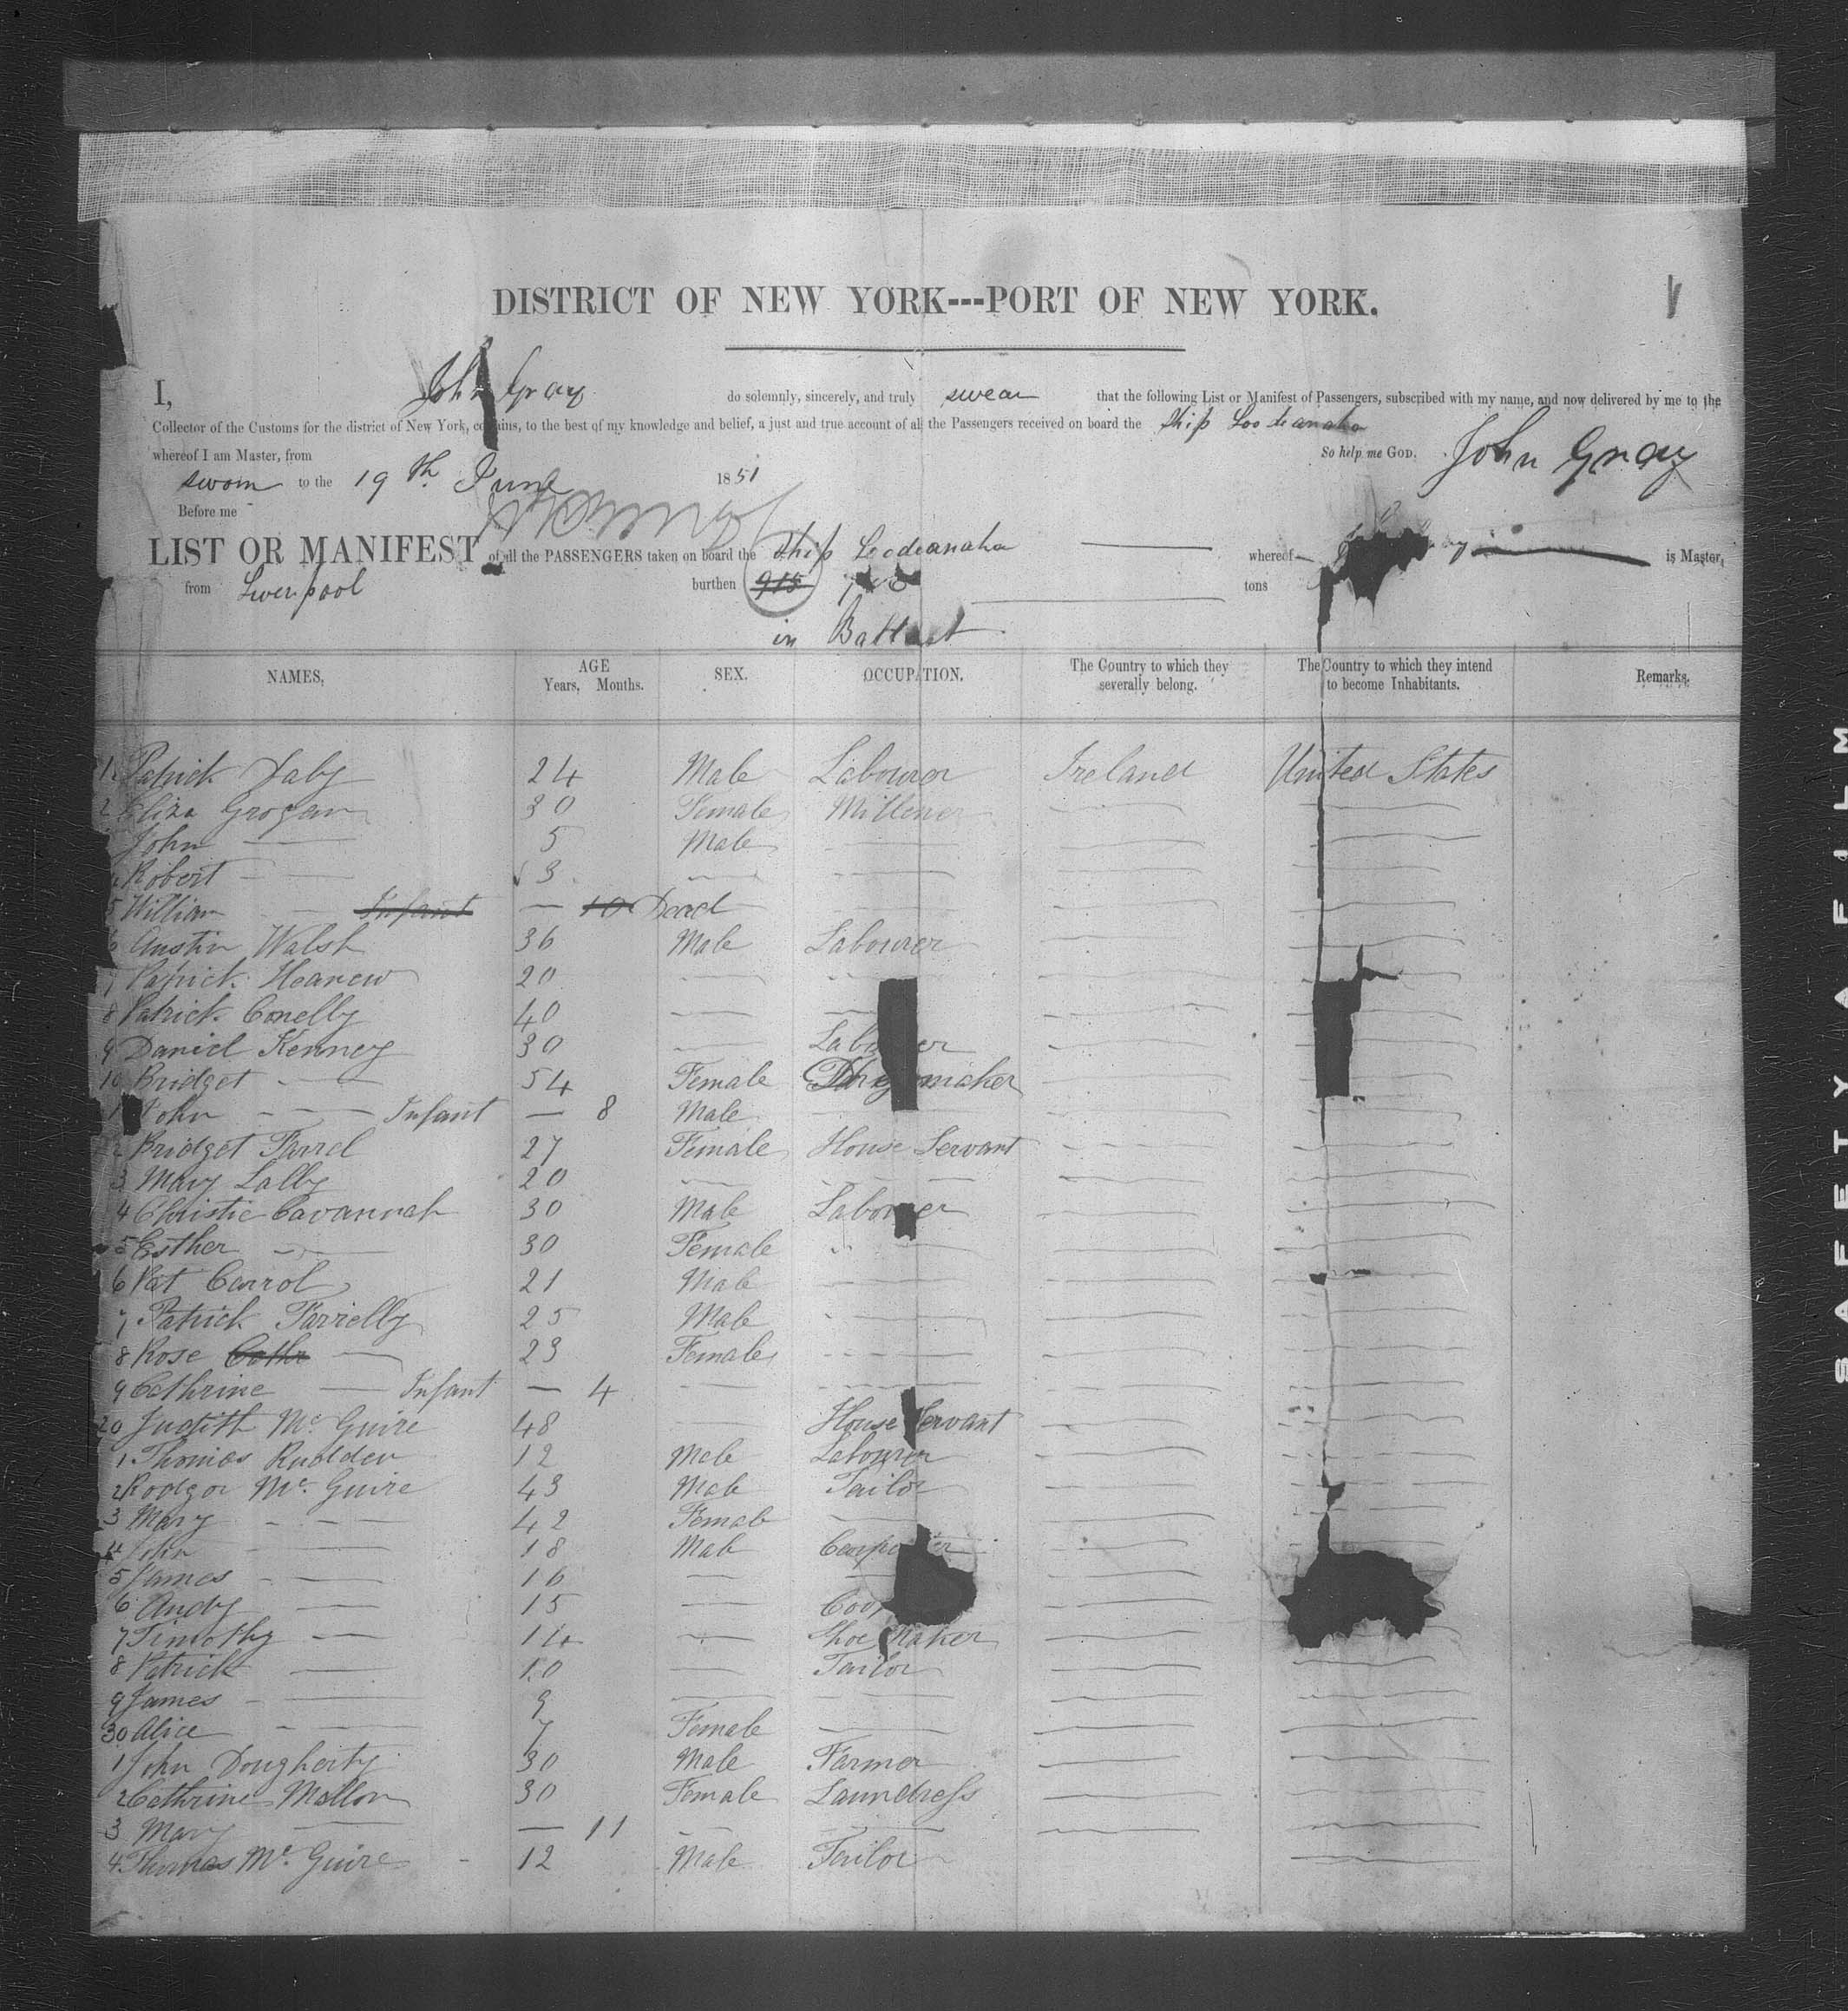 DISTRICT OF NEW YORK---PORT OF NEW YORK.
I, John Gray do solemnly, sincerely, and truly swear that the following List or Manifest of Passengers, subscribed with my name, and now delivered by me to the
Collector of the Customs for the district of New York, contains, to the best of my knowledge and belief, a just and true account of all the Passengers received on board the Ship Loodeanaha
whereof I am Master, from So help me GOD. John Gray
sworn to the 19th June 1851
Before me
LIST OR MANIFEST of all the PASSENGERS taken on board the Ship Loodeanaha whereof is Master,
from Liverpool burthen 915 tons
in Ballast
NAMES, AGE Years, Months. SEX. OCCUPATION. The Country to which they severally belong. The Country to which they intend to become Inhabitants. Remarks.
1 Patrick Daly 24 Male Labourer Ireland United States
2 Eliza Grogan 30 Female Millener
John 5 Male
Robert 3
5 William Infant — 10 Dead
6 Austin Walsh 36 Male Labourer
7 Patrick 20
8 Patrick Conelly 40
9 Daniel Kenney 30 Labourer
10 Bridget 54 Female
1 John Infant — 8 Male
2 Bridget Farrel 27 Female House Servant
3 Mary Lally 20
4 Christie Cavannah 30 Male Labourer
5 Esther 30 Female
6 Pat Carrol 21 Male
7 Patrick Farrielly 25 Male
8 Rose Cathr 23 Female
9 Cathrine Infant — 4
20 Judith Mc Guire 48 House Servant
1 Thomas Rudden 12 Male Labourer
2 Rodger Mc Guire 43 Male Tailor
3 Mary 42 Female
4 John 18 Male Carpenter
5 James 16
6 Andy 15
7 Timothy 14 Shoe Maker
8 Patrick 10 Tailor
9 James 9
30 Alice 7 Female
1 John Dougherty 30 Male Farmer
2 Cathrine Mallon 30 Female Laundress
3 Mary — 11
4 Thomas Mc Guire 12 Male Tailor
SAFETY FILM